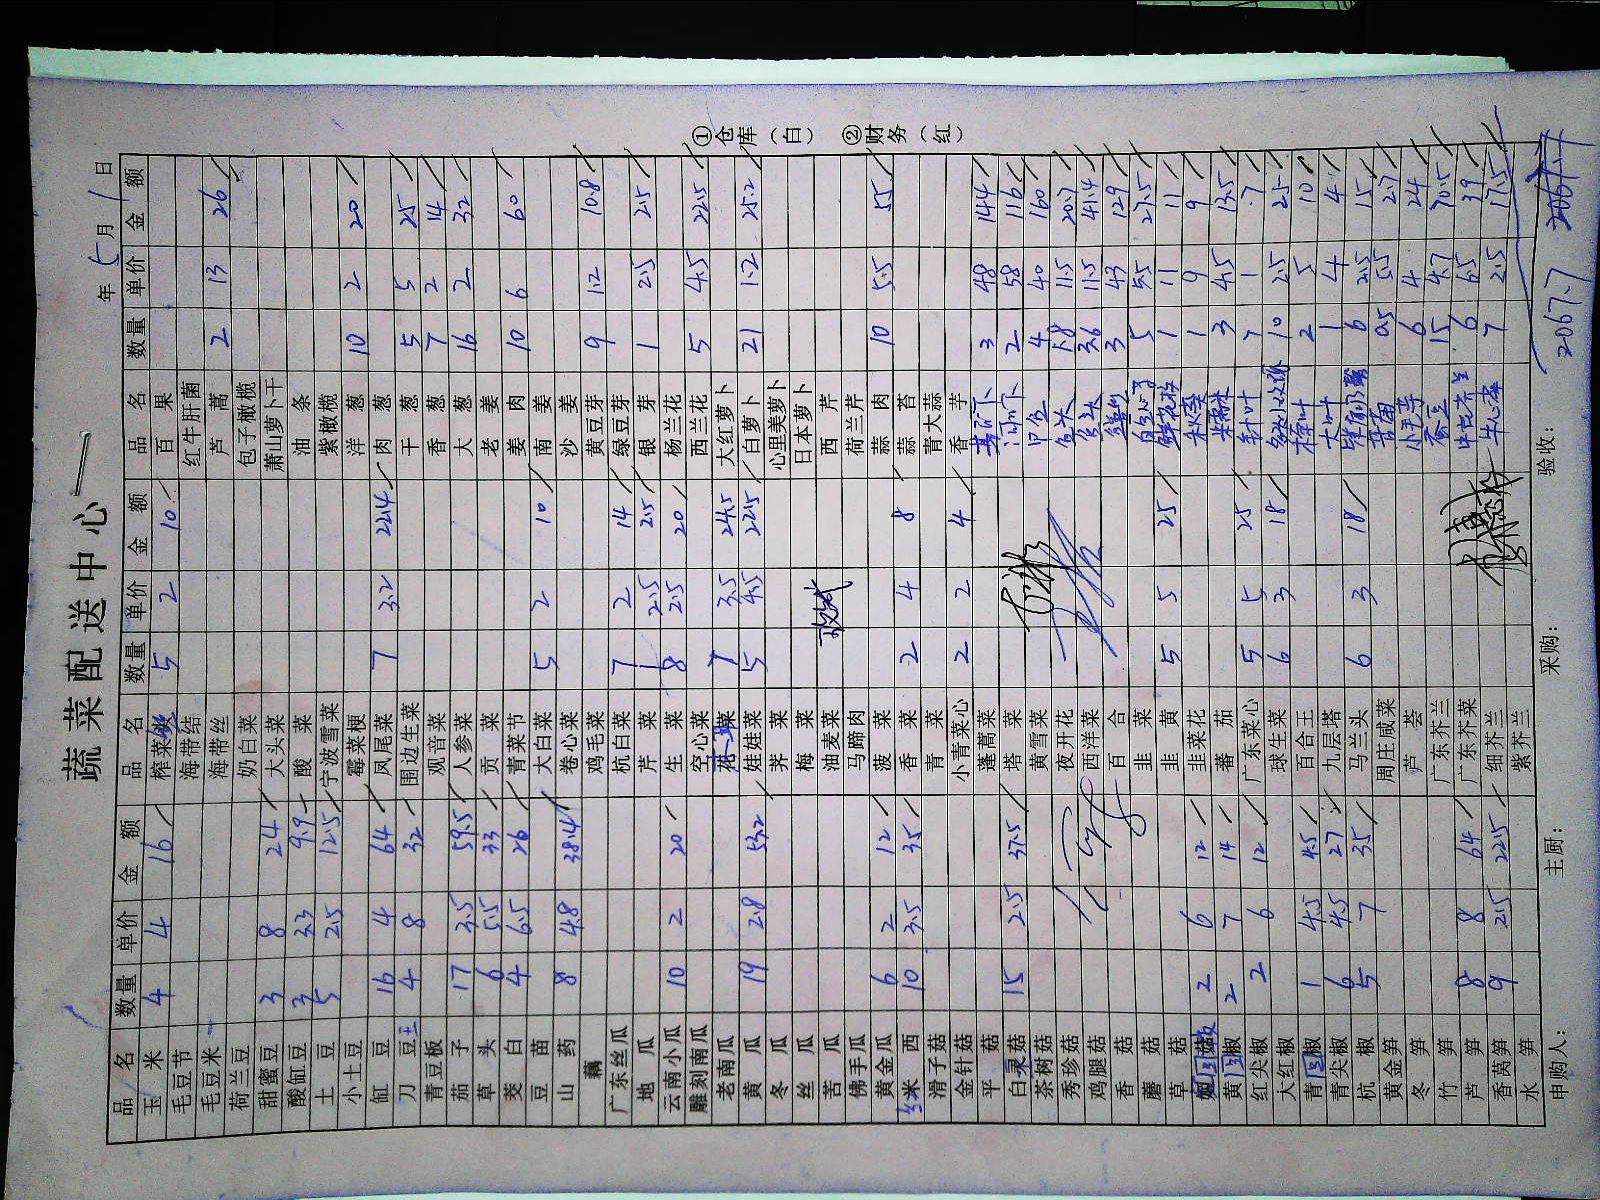 蔬菜配送中心
年 5月1日
品名 数量 单价 金额 品名 数量 单价 金额 品名 数量 单价 金额
玉米 4 4 16 榨菜丝 5 2 10 百果
毛豆节 海带结 红牛肝菌
毛豆米 海带丝 芦蒿 2 13 26
荷兰豆 奶白菜 包子橄榄
甜蜜豆 3 8 24 大头菜 萧山萝卜干
酸缸豆 3 3.3 9.9 酸菜 油条
土豆 5 2.5 12.5 宁波雪菜 紫橄榄
小土豆 霉菜梗 洋葱 10 2 20
缸豆 16 4 64 凤尾菜 7 3.2 22.4 肉葱
刀豆王 4 8 32 围边生菜 干葱 5 5 25
青豆板 观音菜 香葱 7 2 14
茄子 17 3.5 59.5 人参菜 大葱 16 2 32
草头 6 5.5 33 贡菜 老姜
茭白 4 6.5 26 青菜节 姜肉 10 6 60
豆苗 大白菜 5 2 10 南姜
山药 8 4.8 38.4 卷心菜 沙姜
藕 鸡毛菜 黄豆芽 9 1.2 10.8
广东丝瓜 杭白菜 7 2 14 绿豆芽
地瓜 芹菜 1 2.5 2.5 银芽 1 2.5 2.5
云南小瓜 10 2 20 生菜 8 2.5 20 杨兰花
雕刻南瓜 空心菜 西兰花 5 4.5 22.5
老南瓜 花菜 7 3.5 24.5 大红萝卜
黄瓜 19 2.8 53.2 娃娃菜 5 4.5 22.5 白萝卜 21 1.2 25.2
冬瓜 荠菜 心里美萝卜
丝瓜 梅菜 日本萝卜
苦瓜 油麦菜 西芹
佛手瓜 马蹄肉 荷兰芹
黄金瓜 6 2 12 菠菜 蒜肉 10 5.5 55
米西 10 3.5 35 香菜 2 4 8 蒜苔
滑子菇 青菜 青大蒜
金针菇 小青菜心 2 2 4 香芋
平菇 蓬蒿菜 3 48 144
白灵菇 15 2.5 37.5 塔菜 2 58 116
茶树菇 黄雪菜 4 40 160
秀珍菇 夜开花 鱼头 1.8 11.5 20.7
鸡腿菇 西洋菜 3.6 11.5 41.4
香菇 百合 3 43 129
蘑菇 韭菜 5 5.5 27.5
草菇 韭黄 5 5 25 1 11 11
圆椒 2 6 12 韭菜花 1 9 9
黄圆椒 2 7 14 番茄 3 4.5 13.5
红尖椒 2 6 12 广东菜心 5 5 25 7 1 7
大红椒 球生菜 6 3 18 10 2.5 25
青圆椒 1 4.5 4.5 百合王 2 5 10
青尖椒 6 4.5 27 九层塔 大叶 1 4 4
杭椒 5 7 35 马兰头 6 3 18 6 2.5 15
黄金笋 周庄咸菜 0.5 5.5 2.7
冬笋 芦荟 小毛芋 6 4 24
竹笋 广东芥兰 蚕豆 15 4.7 70.5
芦笋 8 8 64 广东芥菜 6 6.5 39
香莴笋 9 2.5 22.5 细芥兰 7 2.5 17.5
水笋 紫芥兰
2067.7
申购人： 主厨： 采购： 验收：
①仓库（白） ②财务（红）